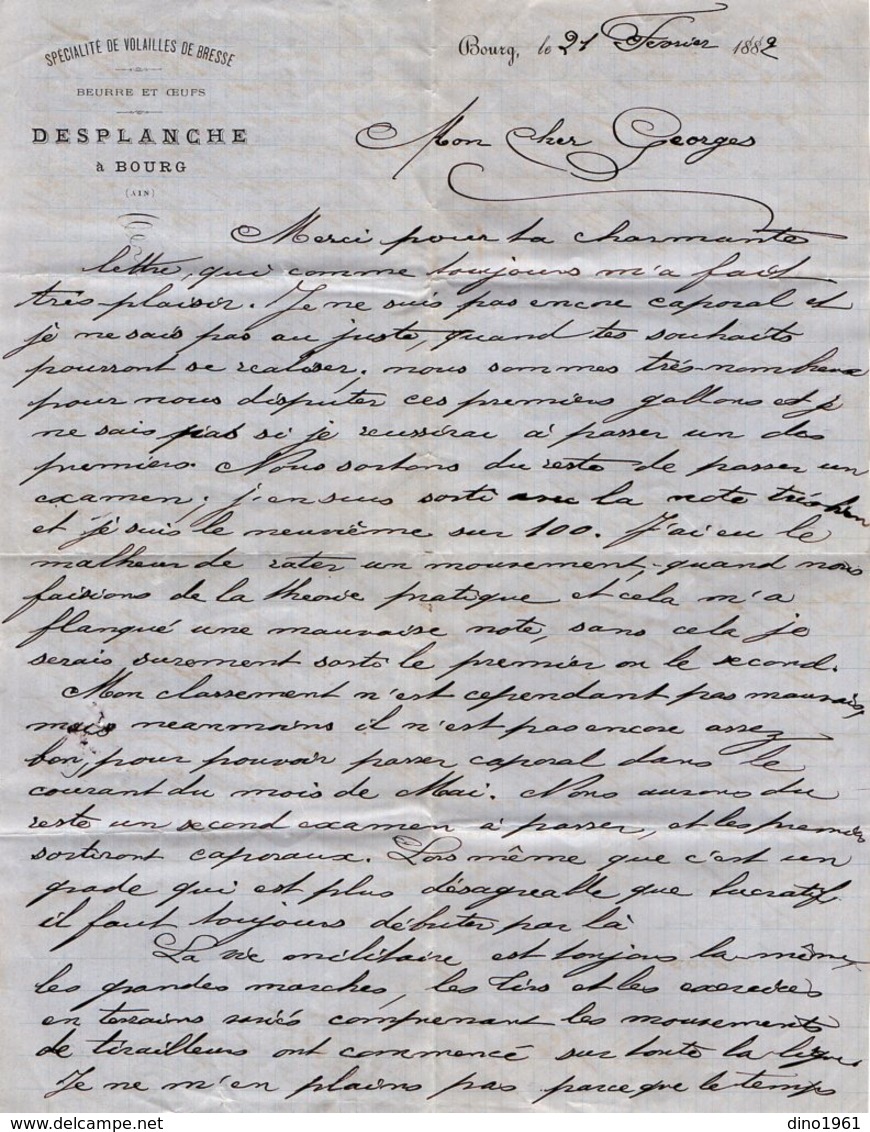 SPÉCIALITÉ DE VOLAILLES DE BRESSE
BEURRE ET ŒUFS
DESPLANCHE
à BOURG
(AIN)
Bourg, le 21 Fevrier 1882
Mon Cher Georges
Merci pour ta charmante
lettre, qui comme toujours m'a fait
très-plaisir. Je ne suis pas encore caporal et
je ne sais pas au juste, quand tes souhaits
pourront se realiser; nous sommes très-nombreux
pour nous disputer ces premiers gallons et je
ne sais pas si je reussirai à passer un des
premiers. Nous sortons du reste de passer un
examen; j'en suis sorti avec la note très-bien
et je suis le neuvième sur 100. J'ai eu le
malheur de rater un mouvement, quand nous
faisions de la théorie pratique et cela m'a
flanqué une mauvaise note, sans cela je
serais surement sorti le premier ou le second.
Mon classement n'est cependant pas mauvais,
mais neanmoins il n'est pas encore assez
bon, pour pouvoir passer caporal dans le
courant du mois de Mai. Nous aurons du
reste un second examen à passer, et les premiers
sortiront caporaux. Lors même que c'est un
grade qui est plus désagreable que lucratif
il faut toujours débuter par là
La vie militaire est toujours la même,
les grandes marches, les tirs et les exercices
en terrains variés comprenant les mouvements
de tirailleurs ont commencé sur toute la ligne
Je ne m'en plains pas parceque le temps
dino1961